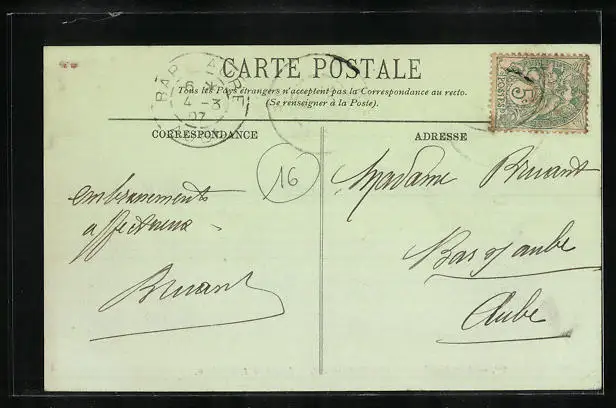 CARTE POSTALE
Tous les Pays étrangers n'acceptent pas la Correspondance au recto.
(Se renseigner à la Poste).
CORRESPONDANCE
ADRESSE
BAR AUBE
6
4 -3
07
5c
POSTES
16
embrassements
affectueux
Bruant
Madame Bruant
Bar s/ aube
Aube